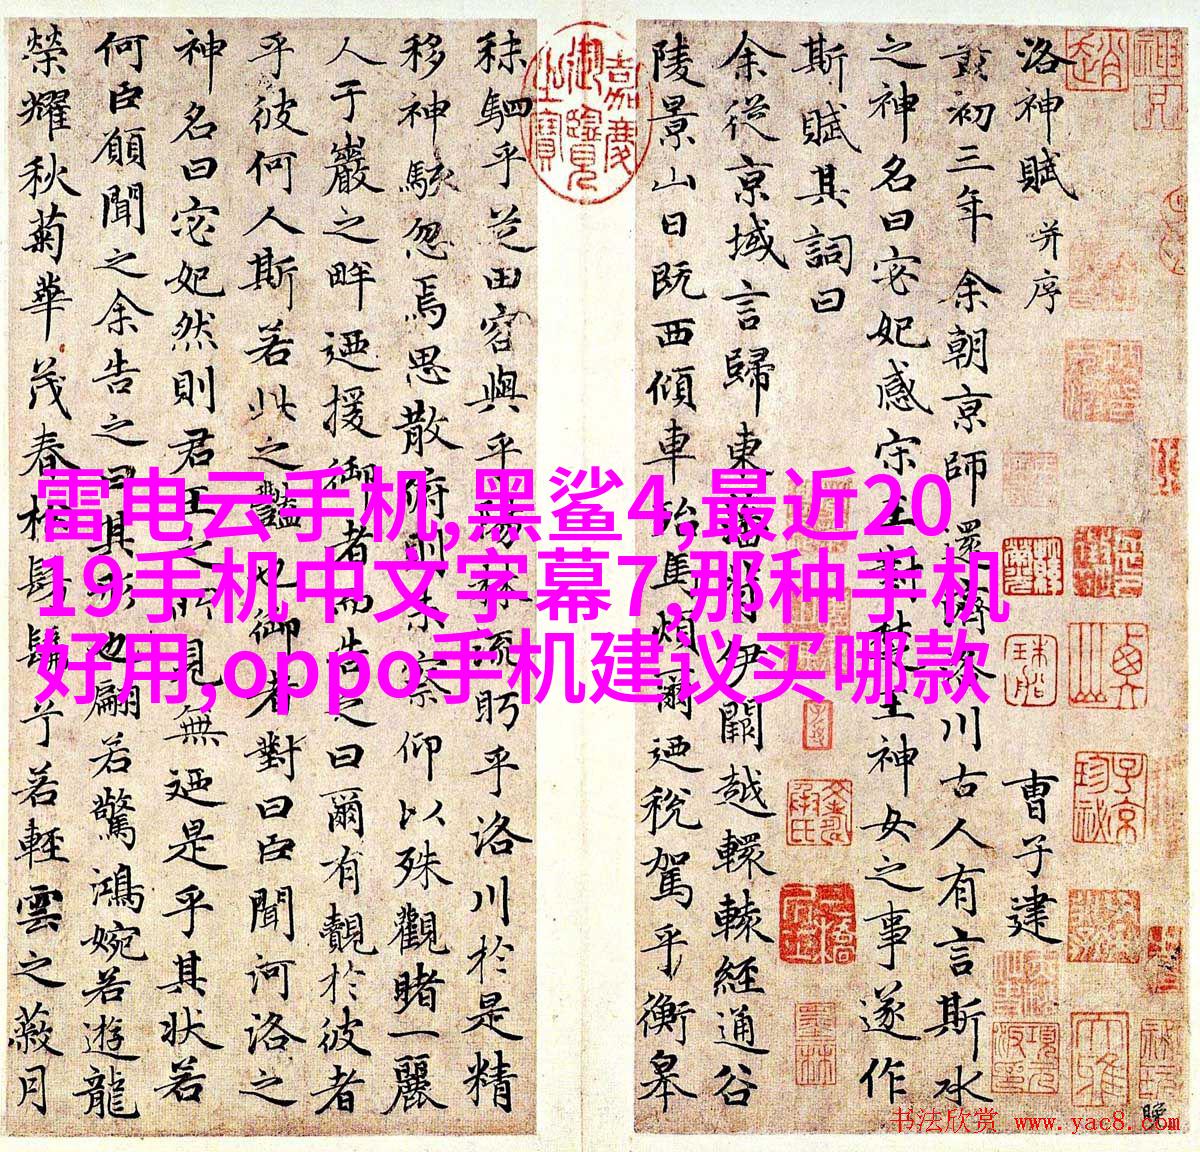 洛神賦 并序
曹子建
黃初三年余朝京師還濟洛川古人有言斯水
之神名曰宓妃感宋玉對楚王神女之事遂作
斯賦其詞曰
余從京域言歸東藩背伊闕越轘轅經通谷
陵景山日既西傾車殆馬煩爾迺稅駕乎蘅皋
秣駟乎芝田容與乎陽林流眄乎洛川於是精
移神駭忽焉思散俯則未察仰以殊觀睹一麗
人于巖之畔迺援御者而告之曰爾有覿於彼者
乎彼何人斯若此之豔也御者對曰臣聞河洛之
神名曰宓妃然則君王之所見無迺是乎其狀若
何臣願聞之余告之曰其形也翩若驚鴻婉若遊龍
榮耀秋菊華茂春松髣髴兮若輕雲之蔽月
嘉慶御覽之寶
雷电云手机,黑鲨4,最近20
19手机中文字幕7,那种手机
好用,oppo手机建议买哪款
书法欣赏 www.yac8.com